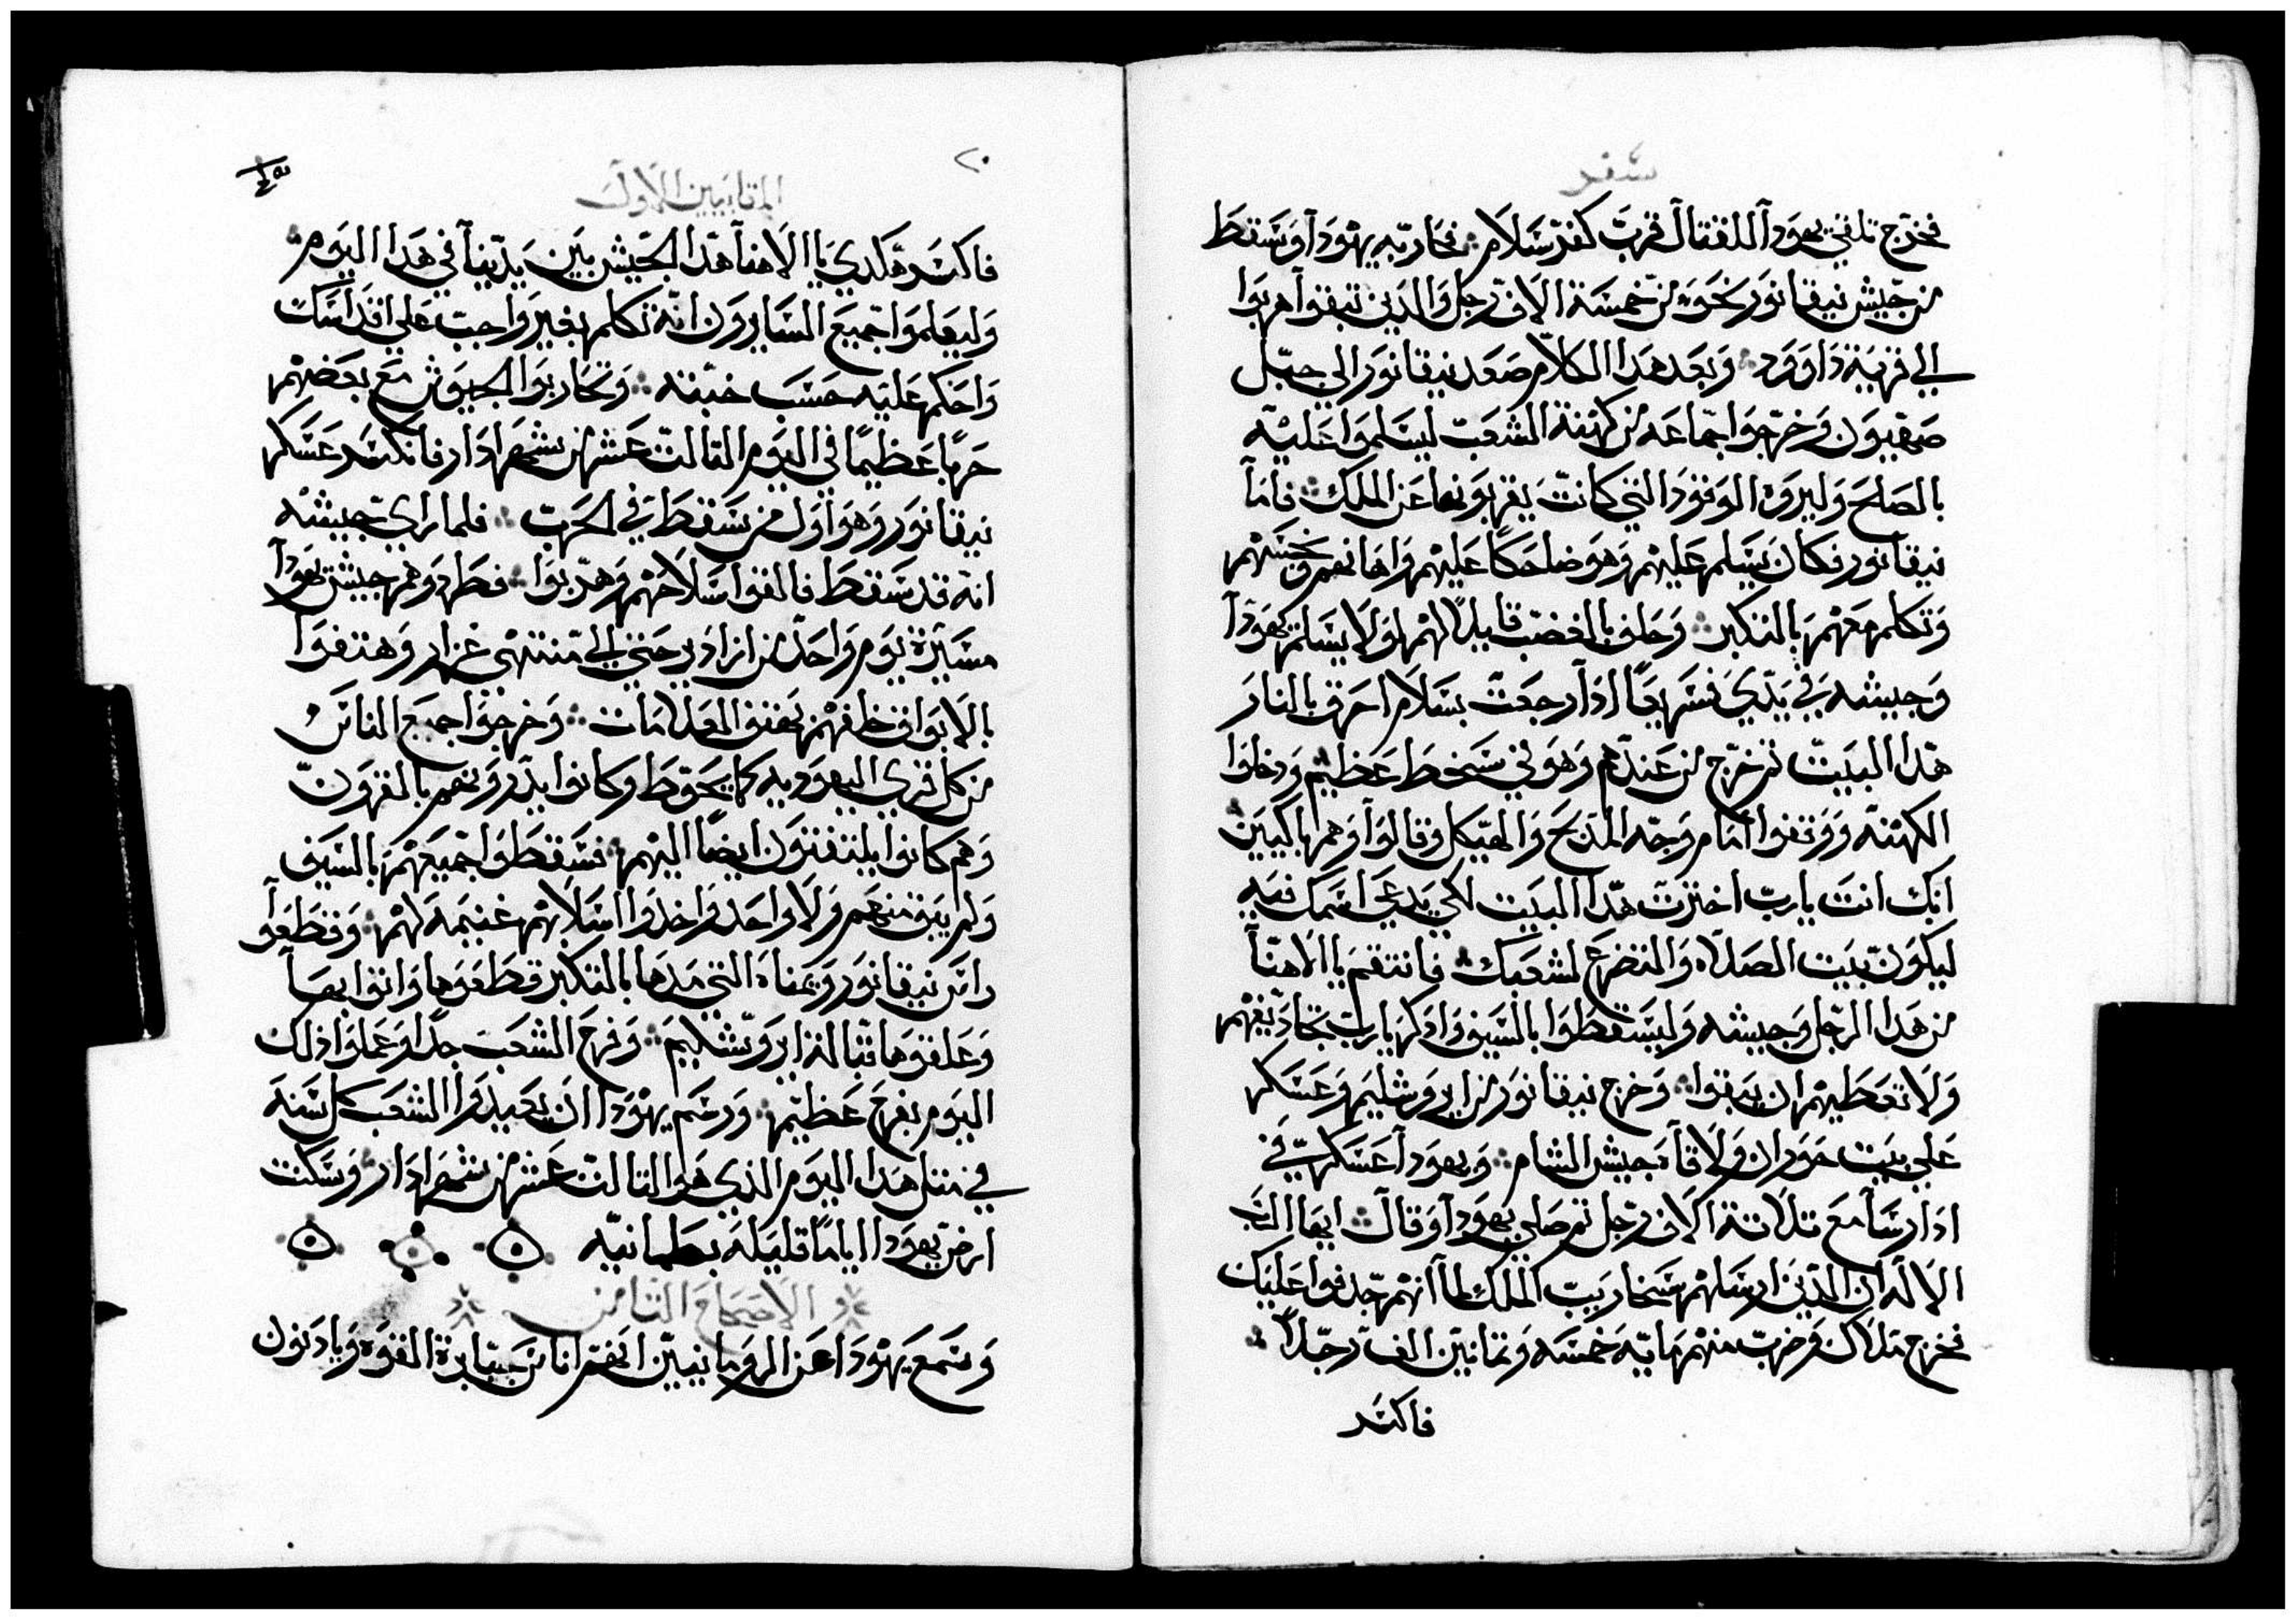 سفر
فخرج تلقي يهودا للقتال قرب كفرسلام فحاربه يهودا وسقط
من جيش نيقانور نحو من خمسة الاف رجل والدين تبقوا هربوا
الي قرية داوود وبعد هدا الكلام صعد نيقانور الي جبل
صهيون وخرجوا جماعه من كهنة الشعب ليسلموا عليه
بالصلح وليروه الوقود التي كانت يقربونها عن الملك فاما
نيقانور فكان يسلم عليهم وهو ضاحكا عليهم واهانهم ونجسهم
وتكلم معهم بالتكبر وحلف بالغضب قايلا لهم لولا يسلم يهودا
وجيشه في يدي فسريعا ادا رجعت بسلام احرق بالنار
هدا البيت ثم خرج من عندهم وهو في سخط عظيم ودخلوا
الكهنة ووقفوا امام وجه المدبح والهيكل وقالوا وهم باكيين
انك انت يارب اخترت هدا البيت لكي يدعي اسمك فيه
ليكون بيت الصلاه والتضرع لشعبك فانتقم يا الاهنا
من هدا الرجل وجيشه وليسقطوا بالسيف وادكر يارب تجاديفهم
ولا تعطيهم ان يبقوا وخرج نيقانور من ايروشليم وعسكر
علي بيت حوران ولاقاه جيش الشام ويهودا عسكر في
ادارسا مع تلاتة الاف رجل تم صلي يهودا وقال ايها الرب
الاله ان الدين ارسلهم سنحاريب الملك لما انهم جدفوا عليك
فخرج ملاك وضرب منهم مايه خمسه وتمانين الف رجلا
فاكسر
٢٠
المقابيين الاول
فاكسر هكدي يا الاهنا هدا الجيش بين يدينا في هدا اليوم
وليعلموا جميع السايرون انه تكلم بغير واجب علي اقداسك
واحكم عليه حسب خبثه وتحاربوا الجيوش مع بعضهم
حربا عظيما في اليوم التالت عشر من شهر ادار فانكسر عسكر
نيقانور وهو اول من سقط في الحرب فلما راي جيشه
انه قد سقط فالقوا سلاحهم وهربوا فطردوهم جيش يهودا
مسيرة يوم واحد من ازادير حتي الي منتهي غزار وهتفوا
بالابواق خلفهم بهتف العلامات وخرجوا جميع الناس
من كل قري اليهوديه كما يحوط وكانوا يدرونهم بالقرون
وهم كانوا يلتفتون ايضا اليهم فسقطوا جميعهم بالسيف
ولم يبق منهم ولا واحد واخدوا اسلابهم غنيمة لهم وقطعوا
راس نيقانور ويمناه التي مدها بالتكبر قطعوها واتوا بها
وعلقوها قبال ايروشليم وفرح الشعب جدا وعملوا دلك
اليوم بفرح عظيم ورسم يهودا ان يعيدوا الشعب كل سنه
في متل هدا اليوم الدي هو التالت عشر من شهر ادار وسكنت
ارض يهودا اياما قليله بطمانيه
الاصحاح التامن
وسمع يهودا عن الرومانيين انهم اناس جبابرة القوه ويادنون